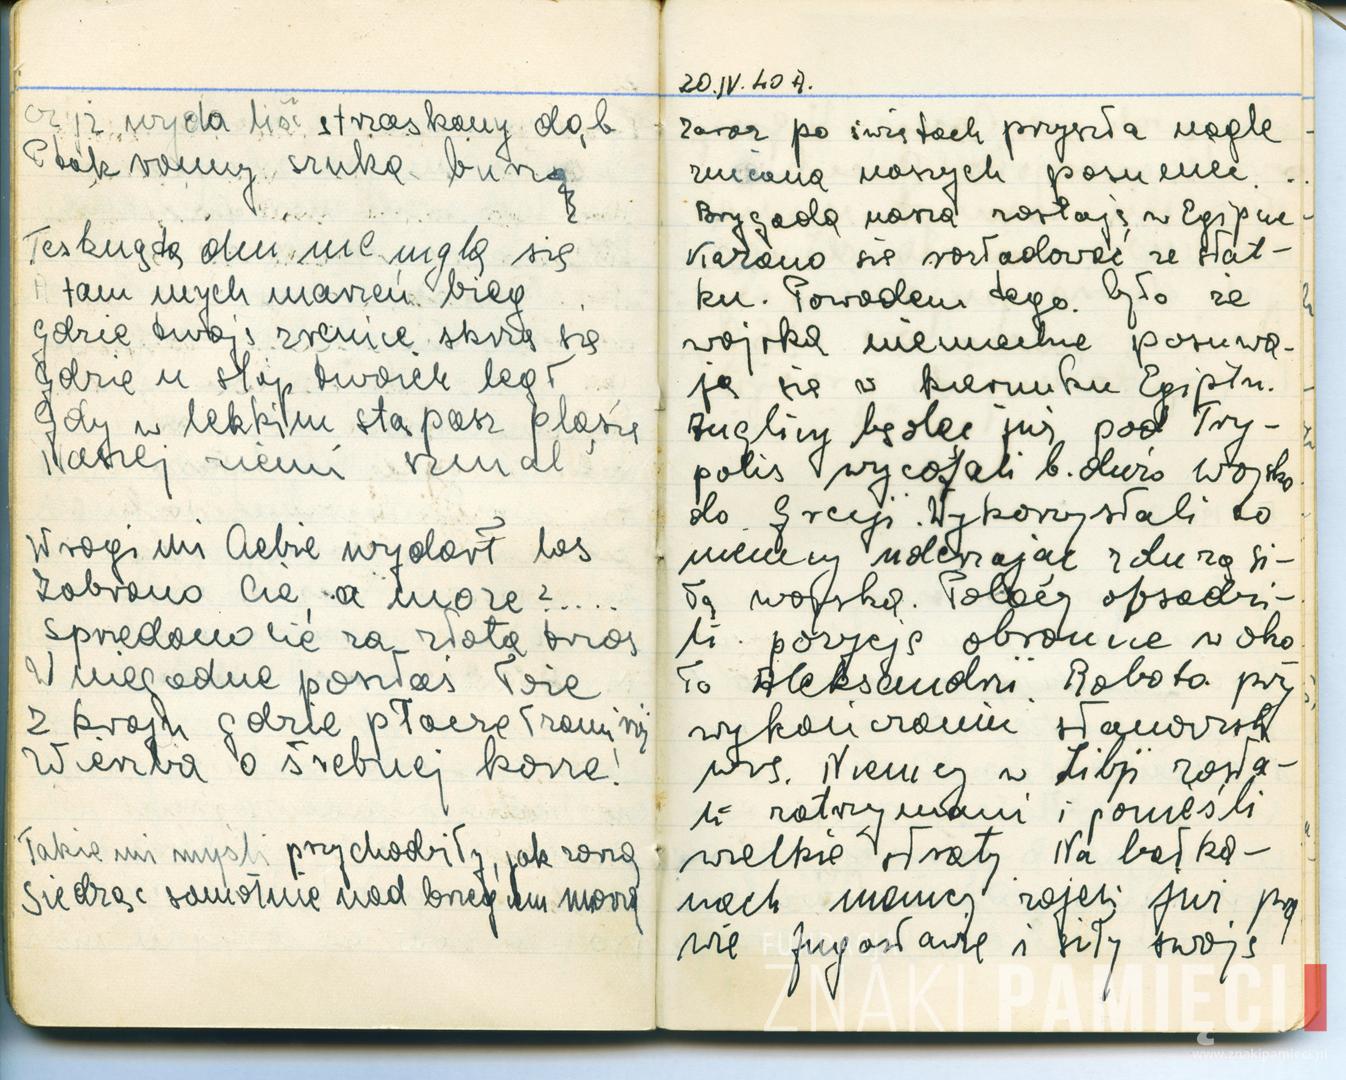 czyż wyda liść strzaskany dąb
Ptak ranny szuka burzę

Teskugtą dni me mglą się
tam mych marzeń bieg
gdzie twoje zrenice skrzą się
Gdzie u stóp twoich legł
Gdy w lekkim stąpasz pląsie
Naszej ziemi szmat

Wrogi mi Ciebie wydarł los
Zabrano Cię, a może?.....
Sprzedano cię za złota trzos
W niegodne poszłaś łoże
Z kraju gdzie płacze łzami
Wierzba o srebnej korze!

Takie mi myśli przychodziły, jak zorzą
Siedząc samotnie nad brzegiem morza
20.IV.40 R.
Zaraz po świętach przyszła nagle
zmiana naszych posunięć...
Brygada nasza zostaje w Egipcie
Kazano się rozładować ze stat-
ku. Powodem tego było że
wojska niemieckie posuwa-
ją się w kierunku Egiptu.
Anglicy będąc już pod Try-
polis wycofali b. dużo wojska
do Grecji. Wykorzystali to
niemcy uderzając z dużą si-
łą wojska. Polacy obsadzi-
li pozycje obronne w oko
ło Aleksandrii. Robota przy
wykończaniu stanowisk
wre. Niemcy w Libji zosta-
li zatrzymani i ponieśli
wielkie straty Na bałka-
nach niemcy zajęli już pra
wie Jugosławię i siły swoje
FUNDACJA
ZNAKI PAMIĘCI
www.znakipamieci.pl